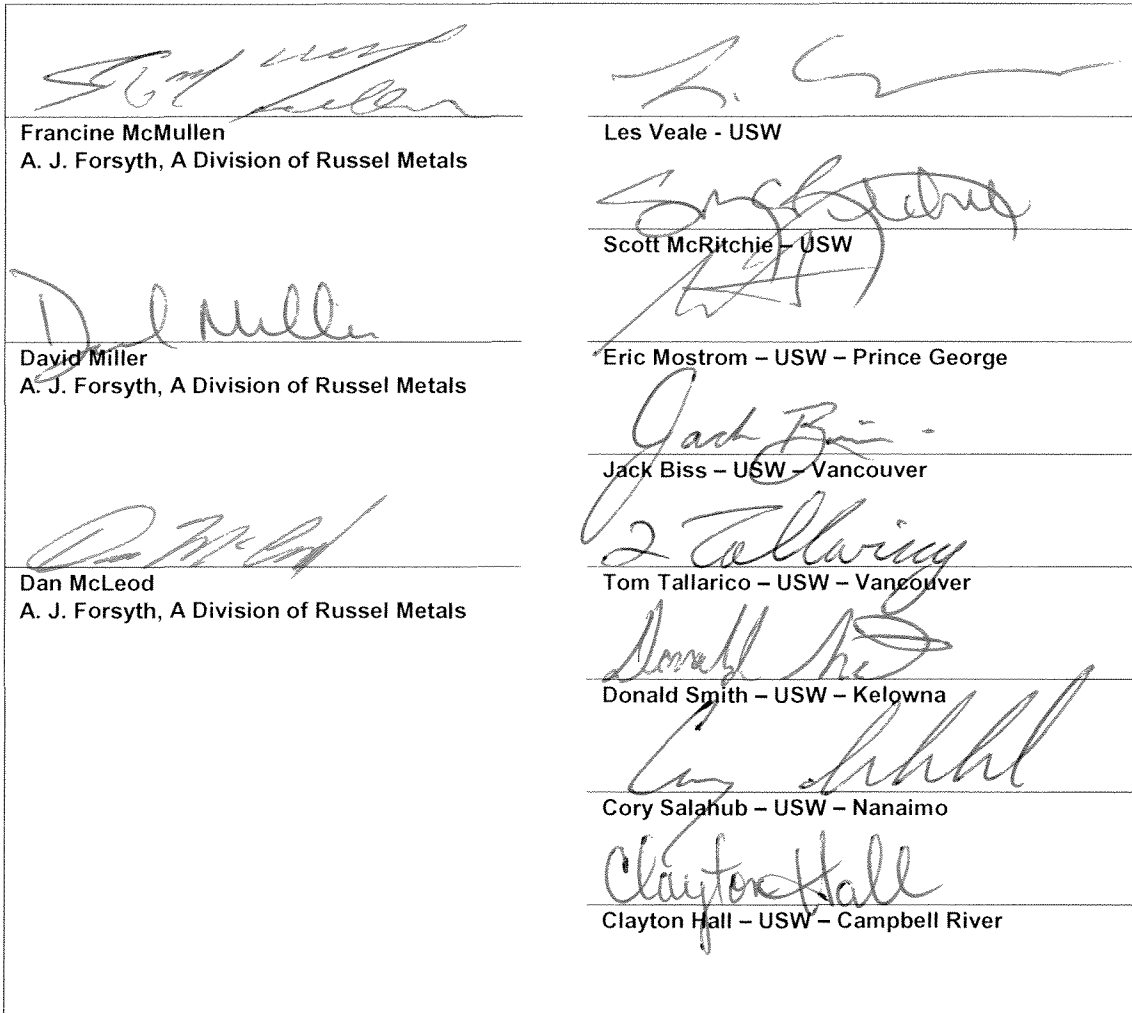 Francine McMullen
A. J. Forsyth, A Division of Russel Metals
David Miller
David Miller
A. J. Forsyth, A Division of Russel Metals
Dan McLeod
Dan McLeod
A. J. Forsyth, A Division of Russel Metals
Les Veale - USW
Scott McRitchie – USW
Eric Mostrom – USW – Prince George
Jack Biss
Jack Biss – USW – Vancouver
Tom Tallarico – USW – Vancouver
Donald
Donald Smith – USW – Kelowna
Cory
Cory Salahub – USW – Nanaimo
Clayton Hall
Clayton Hall – USW – Campbell River